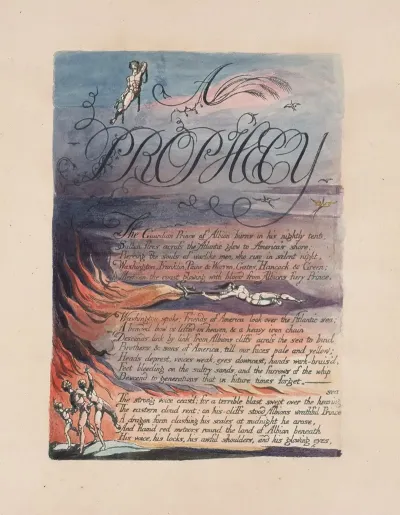 A
PROPHECY
The Guardian Prince of Albion burns in his nightly tent,
Sullen fires across the Atlantic glow to America's shore:
Piercing the souls of warlike men, who rise in silent night,
Washington, Franklin, Paine & Warren, Gates, Hancock & Green;
Meet on the coast glowing with blood from Albions fiery Prince.
Washington spoke; Friends of America look over the Atlantic sea;
A bended bow is lifted in heaven, & a heavy iron chain
Descends link by link from Albions cliffs across the sea to bind
Brothers & sons of America, till our faces pale and yellow;
Heads deprest, voices weak, eyes downcast, hands work-bruis'd,
Feet bleeding on the sultry sands, and the furrows of the whip
Descend to generations that in future times forget.
The strong voice ceas'd; for a terrible blast swept over the heaving sea;
The eastern cloud rent; on his cliffs stood Albions wrathful Prince
A dragon form clashing his scales at midnight he arose,
And flam'd red meteors round the land of Albion beneath
His voice, his locks, his awful shoulders, and his glowing eyes,